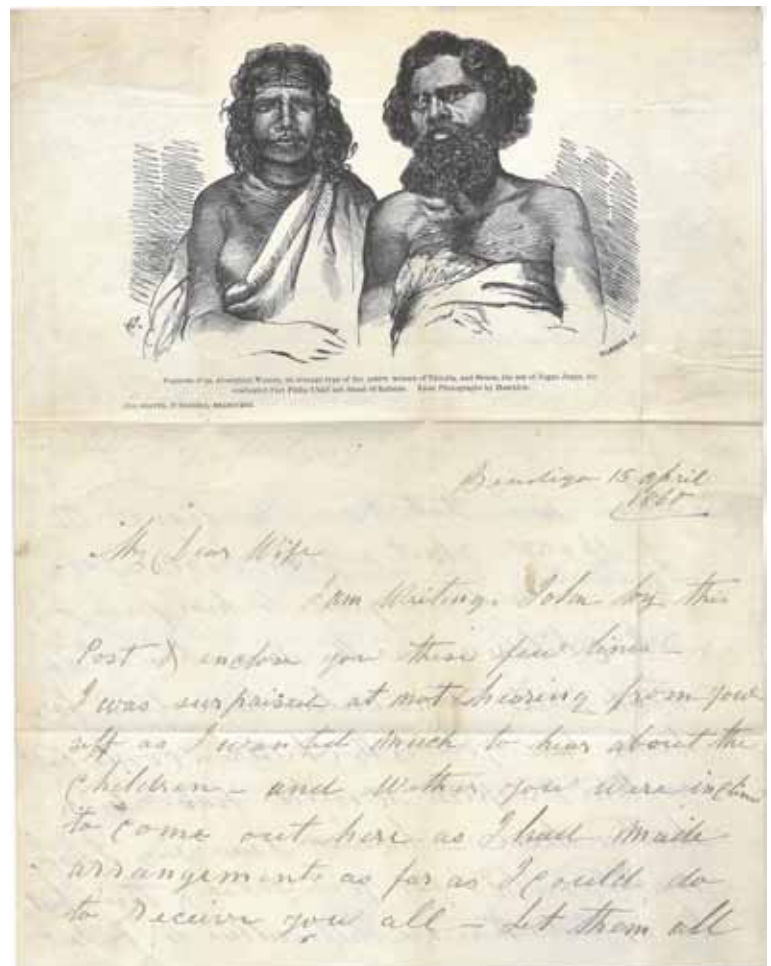 Portraits of an Aboriginal Woman, an average type of the native women of Victoria, and Simon, the son of Jaga Jaga, the
celebrated Port Phillip Chief and friend of Batman. From Photographs by
MELBOURNE.
Bendigo 15 april
1860
My Dear Wife
I am Writing John by this
Post & enclose you these few lines —
I was surpaised at not hearing from your
self as I wanted much to hear about the
Children — and Wether you were inclin
to come out here as I had made
arrangements as far as I could do
to receive you all — Let them all